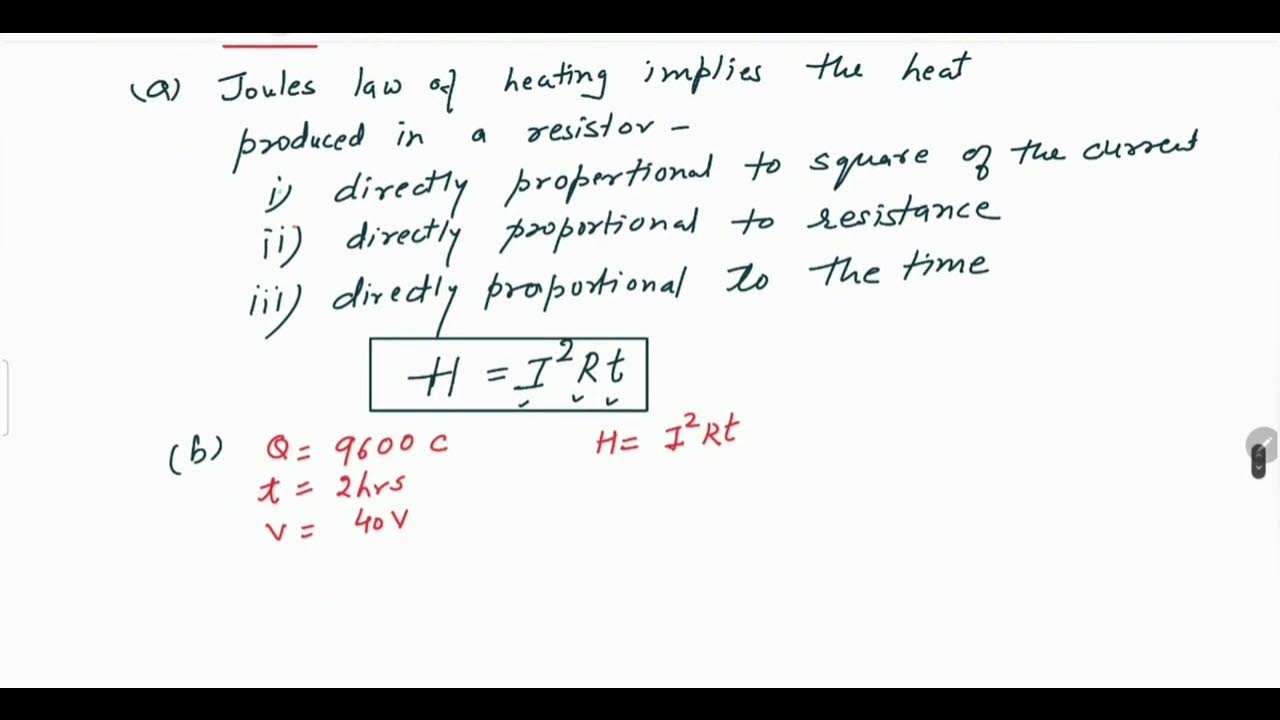 (a) Joules law of heating implies the heat
produced in a resistor -
i) directly propertional to square of the current
ii) directly proportional to resistance
iii) directly proportional to the time
H = I²Rt
(b) Q = 9600 C H = I²Rt
t = 2hrs
V = 40V